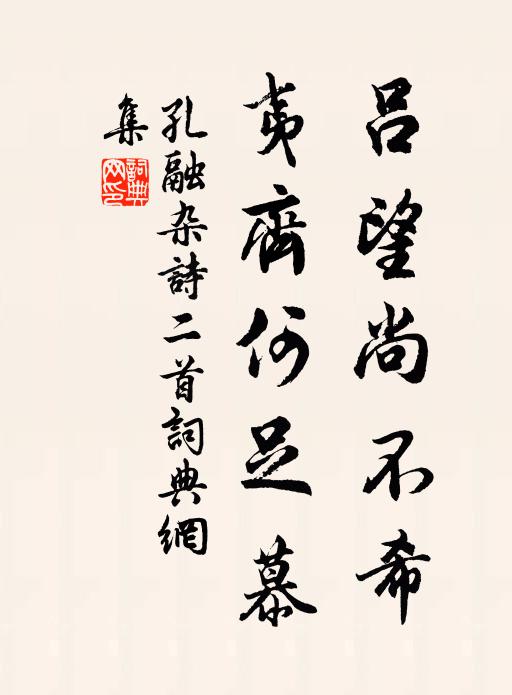 吕望尚不希
夷齊何足慕
孔融杂詩二首詞典網
集
詞典
网印